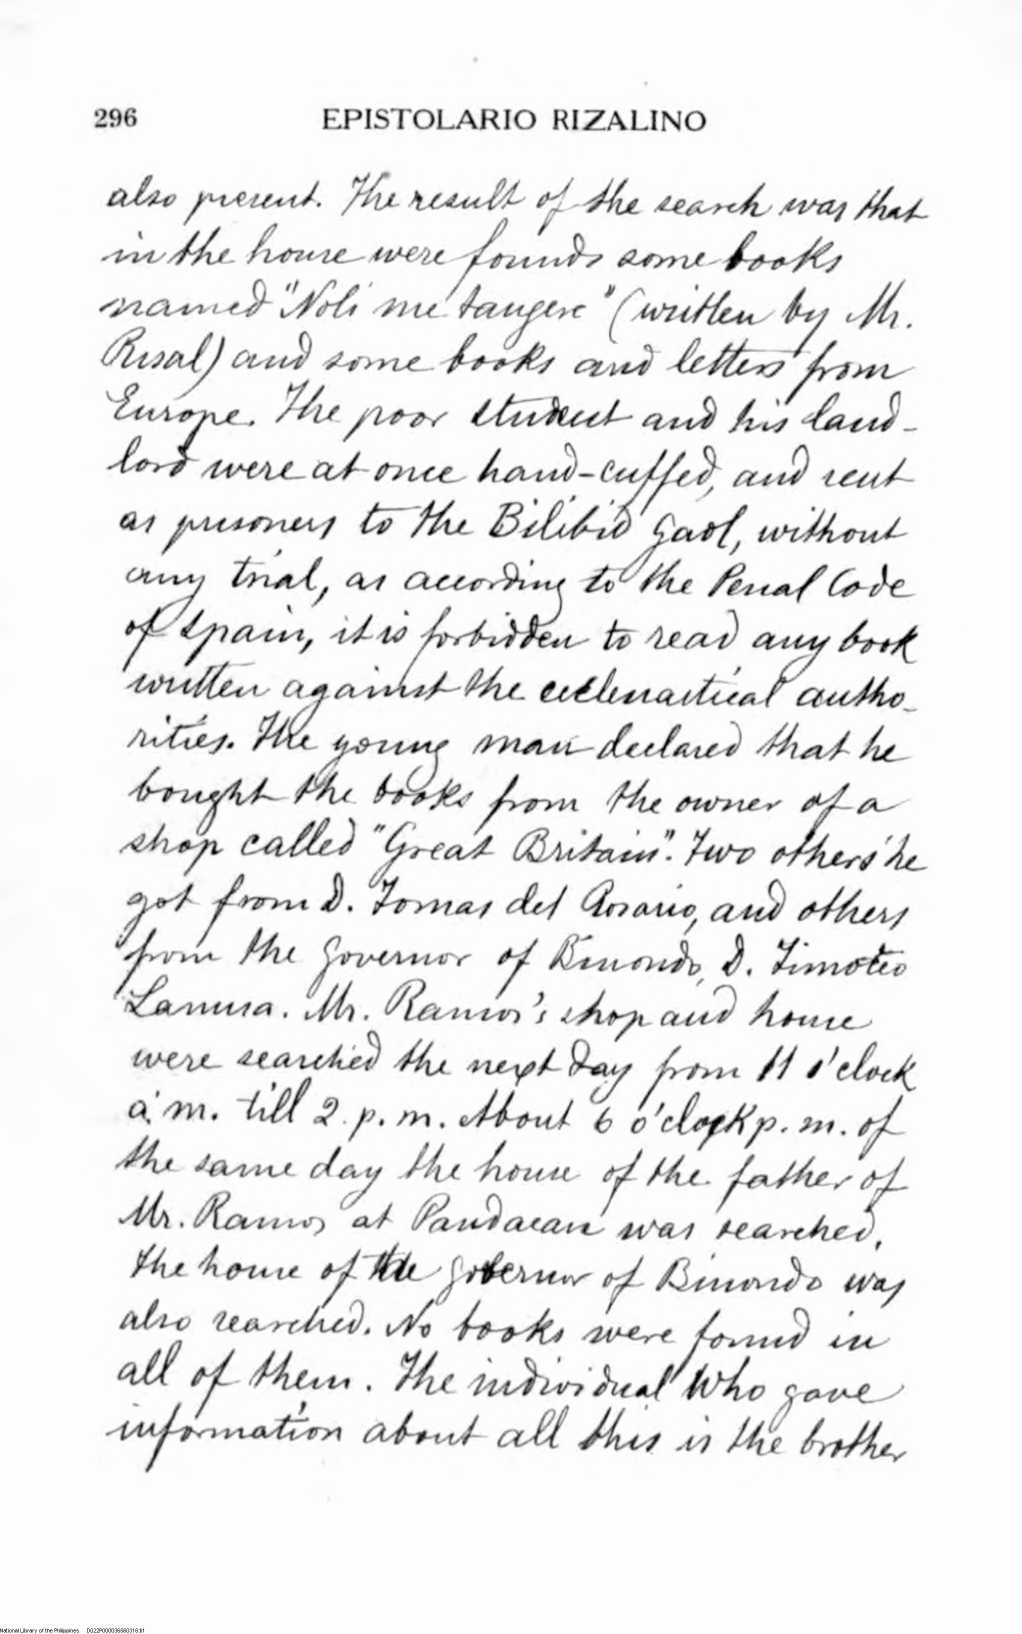 296 EPISTOLARIO RIZALINO
also present. The result of the search was that
in the house were founds some books
named "Noli me tangere" (written by Mr.
Risal) and some books and letters from
Europe. The poor student and his land-
lord were at once hand-cuffed, and sent
as prisoners to the Bilibid Gaol, without
any trial, as according to the Penal Code
of Spain, it is forbidden to read any book
written against the ecclesiastical autho-
rities. The young man declared that he
bought the books from the owner of a
shop called "Great Britain". Two others he
got from D. Tomas del Rosario, and others
from the Governor of Binondo, D. Timoteo
Lanusa. Mr. Ramos's shop and house
were searched the next day from 11 o'clock
a. m. till 2 p. m. About 6 o'clock p. m. of
the same day the house of the father of
Mr. Ramos at Pandacan was searched.
The house of the governor of Binondo was
also searched. No books were found in
all of them. The individual who gave
information about all this is the brother
National Library of the Philippines